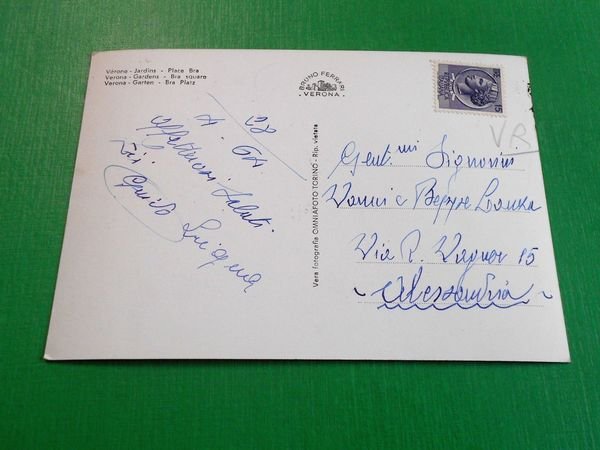 Vérone - Jardins - Place Bra
Verona - Gardens - Bra square
Verona - Garten - Bra Platz
BRUNO FERRARI
- VERONA -
28
4. 64
Affettuosi Saluti
Zii Guido Luigina
Vera fotografia OMNIAFOTO TORINO - Rip. vietata
VR
Gent.mi Signorini
Vanni e Beppe
Via R. Wagner 15
Alessandria